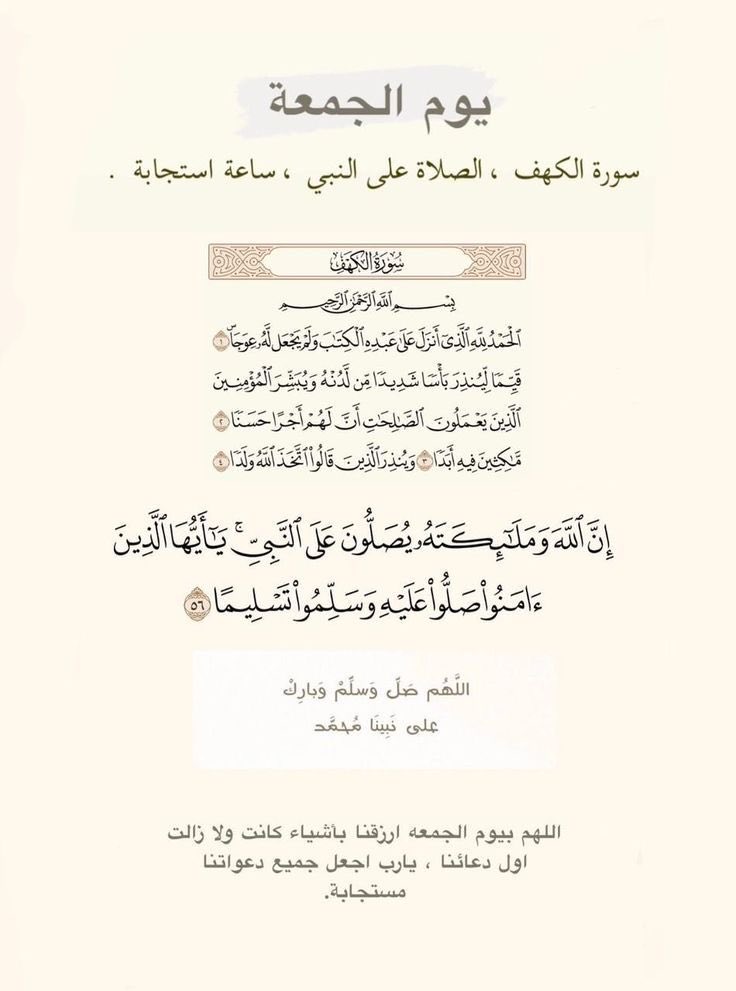 يوم الجمعة
سورة الكهف ، الصلاة على النبي ، ساعة استجابة .
سُورَةُ الكَهْفِ
بِسْمِ ٱللَّهِ ٱلرَّحْمَٰنِ ٱلرَّحِيمِ
ٱلْحَمْدُ لِلَّهِ ٱلَّذِىٓ أَنزَلَ عَلَىٰ عَبْدِهِ ٱلْكِتَٰبَ وَلَمْ يَجْعَل لَّهُۥ عِوَجَاۜ ١
قَيِّمًا لِّيُنذِرَ بَأْسًا شَدِيدًا مِّن لَّدُنْهُ وَيُبَشِّرَ ٱلْمُؤْمِنِينَ
ٱلَّذِينَ يَعْمَلُونَ ٱلصَّٰلِحَٰتِ أَنَّ لَهُمْ أَجْرًا حَسَنًا ٢
مَّٰكِثِينَ فِيهِ أَبَدًا ٣ وَيُنذِرَ ٱلَّذِينَ قَالُوا۟ ٱتَّخَذَ ٱللَّهُ وَلَدًا ٤
إِنَّ ٱللَّهَ وَمَلَٰٓئِكَتَهُۥ يُصَلُّونَ عَلَى ٱلنَّبِىِّ ۚ يَٰٓأَيُّهَا ٱلَّذِينَ
ءَامَنُوا۟ صَلُّوا۟ عَلَيْهِ وَسَلِّمُوا۟ تَسْلِيمًا ٥٦
اللَّهُم صَلّ وَسلِّمْ وَبارِكْ
على نَبِينَا مُحمَّد
اللهم بيوم الجمعه ارزقنا بأشياء كانت ولا زالت
اول دعائنا ، يارب اجعل جميع دعواتنا
مستجابة.